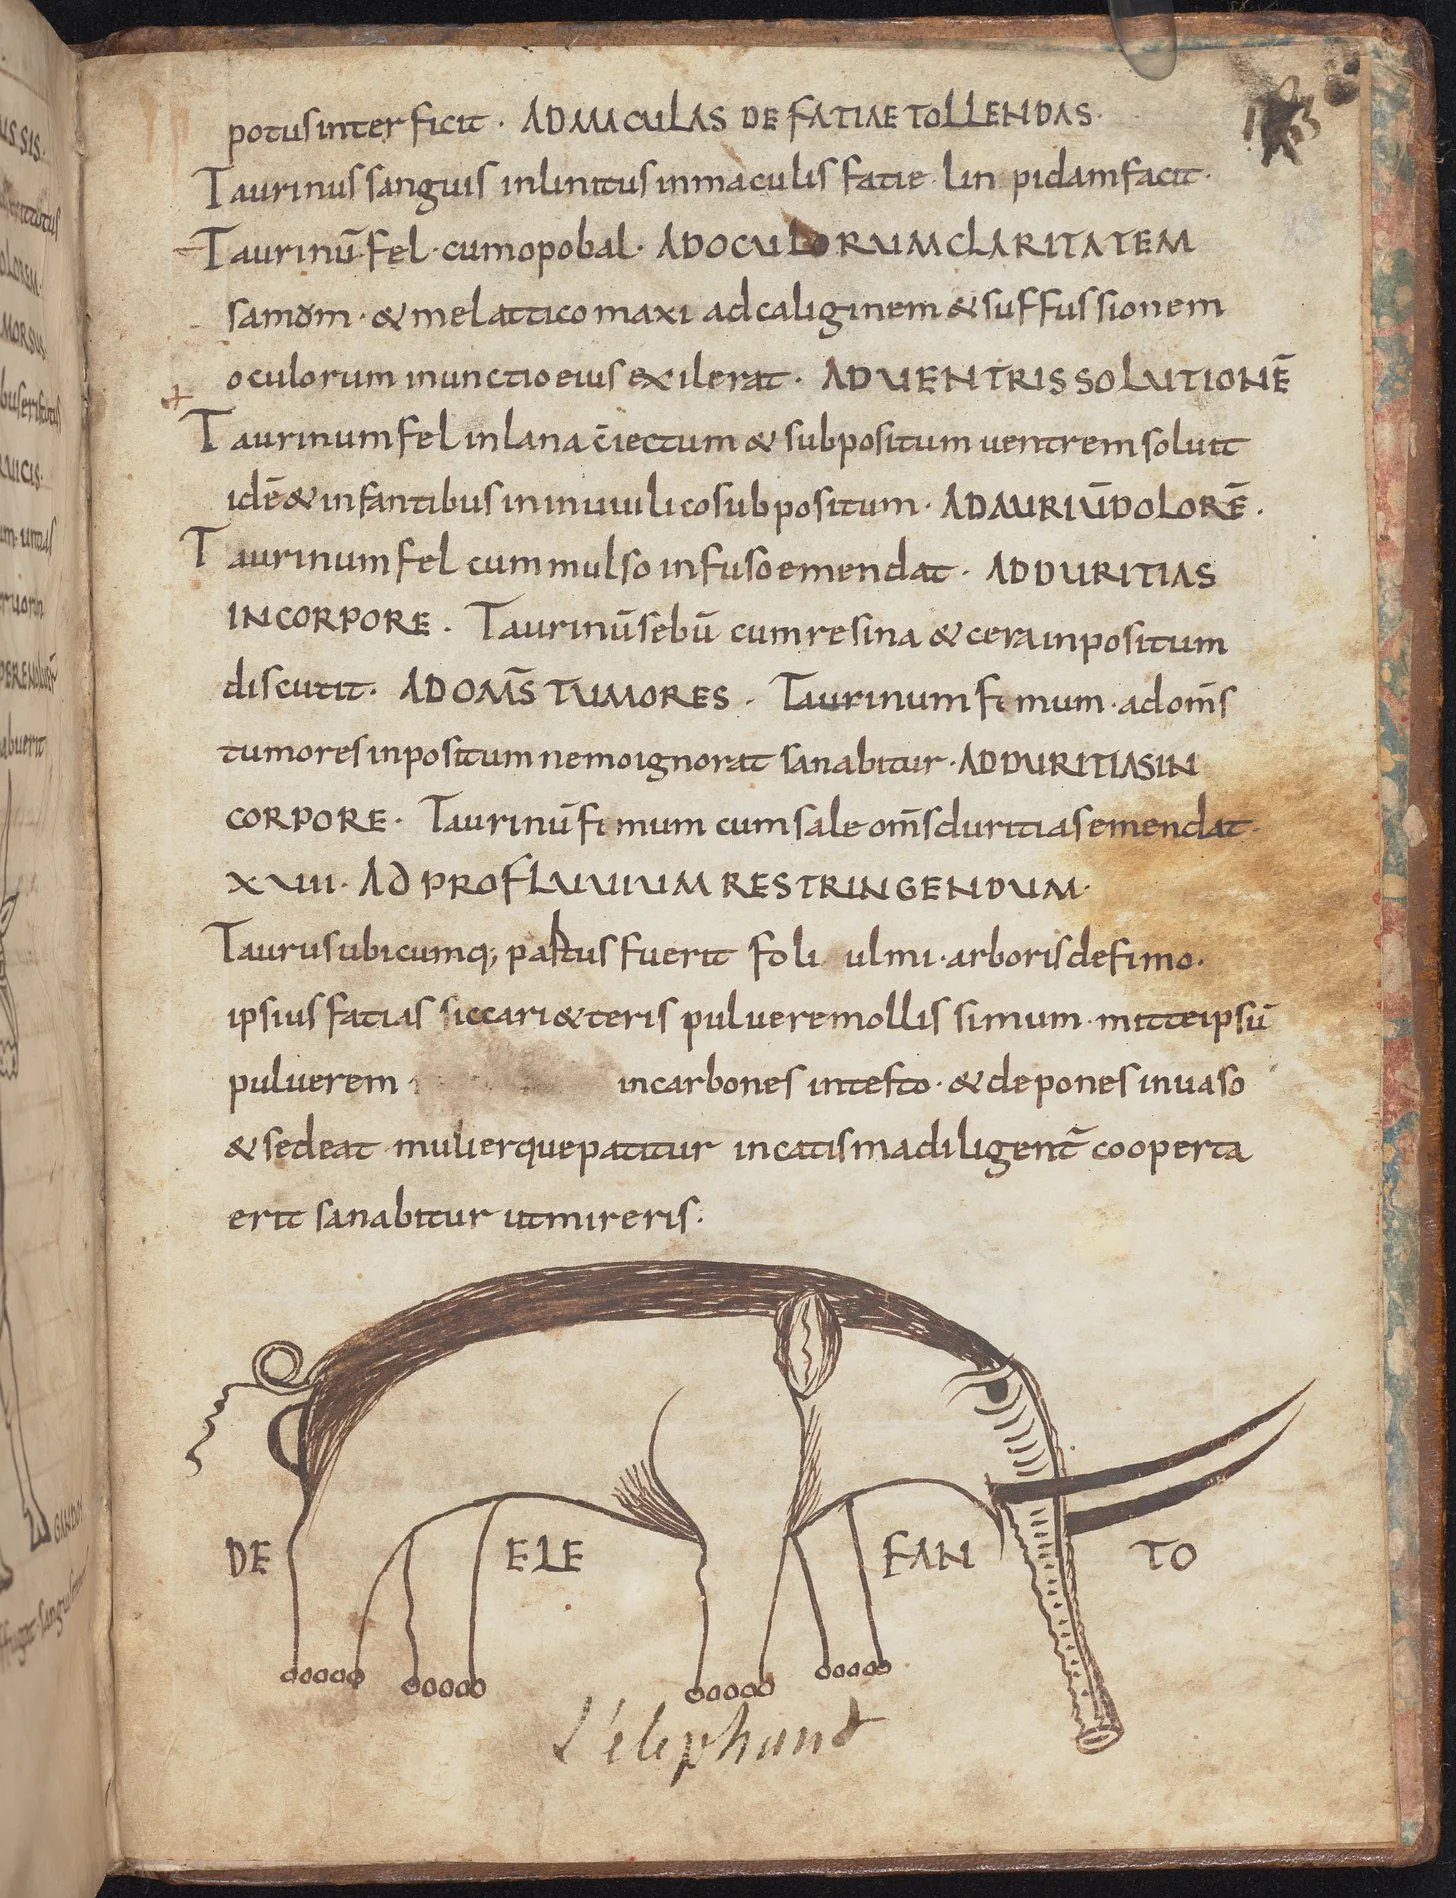 potus interficit · AD MACULAS DE FATIAE TOLLENDAS·
Taurinus sanguis inlinitus in maculis fatie lin pidam facit·
Taurinū·fel·cum opobal· AD OCULORUM CLARITATEM
samom·& mel attico maxi ad caliginem & suffussionem
oculorum inunctio eius exilerat· AD UENTRIS SOLUTIONĒ
Taurinum fel in lana iectum & subpositum uentrem soluit
idē & infantibus in subpositum· AD AURIŪ DOLORĒ·
Taurinum fel cum mulso infuso emendat· AD DURITIAS
IN CORPORE· Taurinū sebū cum resina & cera inpositum
discutit· AD OM̄S TUMORES· Taurinum fimum·ad om̄s
tumores inpositum nemo ignorat sanabitur·AD DURITIAS IN
CORPORE· Taurinū fimum cum sale om̄s duritias emendat·
XVIII· AD PROFLUUIUM RESTRINGENDUM·
Taurus ubicumq; pastus fuerit foli ulmi·arboris de fimo·
ipsius fatias siccari & teris puluere mollissimum·mitte ipsū
puluerem· in carbones in testo·& depones in uaso
& sedeat mulier que patitur in ea diligent̄ cooperta
erit sanabitur ut mireris·
DE ELE FAN TO
L'elephant